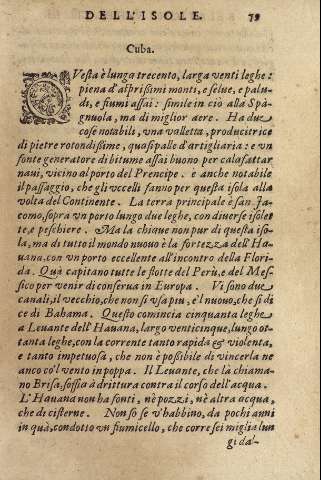 DELL'ISOLE. 79
Cuba.
QVesta è lunga trecento, larga venti leghe:
piena d'asprissimi monti, e selue, e palu-
di, e fiumi assai: simile in ciò alla Spa-
gnuola, ma di miglior aere. Ha due
cose notabili, vna valletta, producitrice
di pietre rotondissime, quasi palle d'artigliaria: e vn
fonte generatore di bitume assai buono per calafattar
naui, vicino al porto del Prencipe. e anche notabile
il passaggio, che gli vccelli fanno per questa isola alla
volta del Continente. La terra principale è san Ja-
como, sopra vn porto lungo due leghe, con diuerse isolet
te, e peschiere. Ma la chiaue non pur di questa iso-
la, ma di tutto il mondo nuouo è la fortezza dell'Ha-
uana, con vn porto eccellente all'incontro della Flori-
da. Quà capitano tutte le flotte del Perù, e del Mes-
sico per venir di conserua in Europa. Vi sono due
canali, il vecchio, che non si vsa piu, e'l nuouo, che si di-
ce di Bahama. Questo comincia cinquanta leghe
a Leuante dell'Hauana, largo venticinque, lungo ot-
tanta leghe, con la corrente tanto rapida & violenta,
e tanto impetuosa, che non è possibile di vincerla ne
anco co'l vento in poppa. Il Leuante, che là chiama-
no Brisa, soffia à drittura contra il corso dell'acqua.
L'Hauana non ha fonti, nè pozzi, nè altra acqua,
che di cisterne. Non so se v'habbino, da pochi anni
in quà, condotto vn fiumicello, che corre sei miglia lun
gi da'-